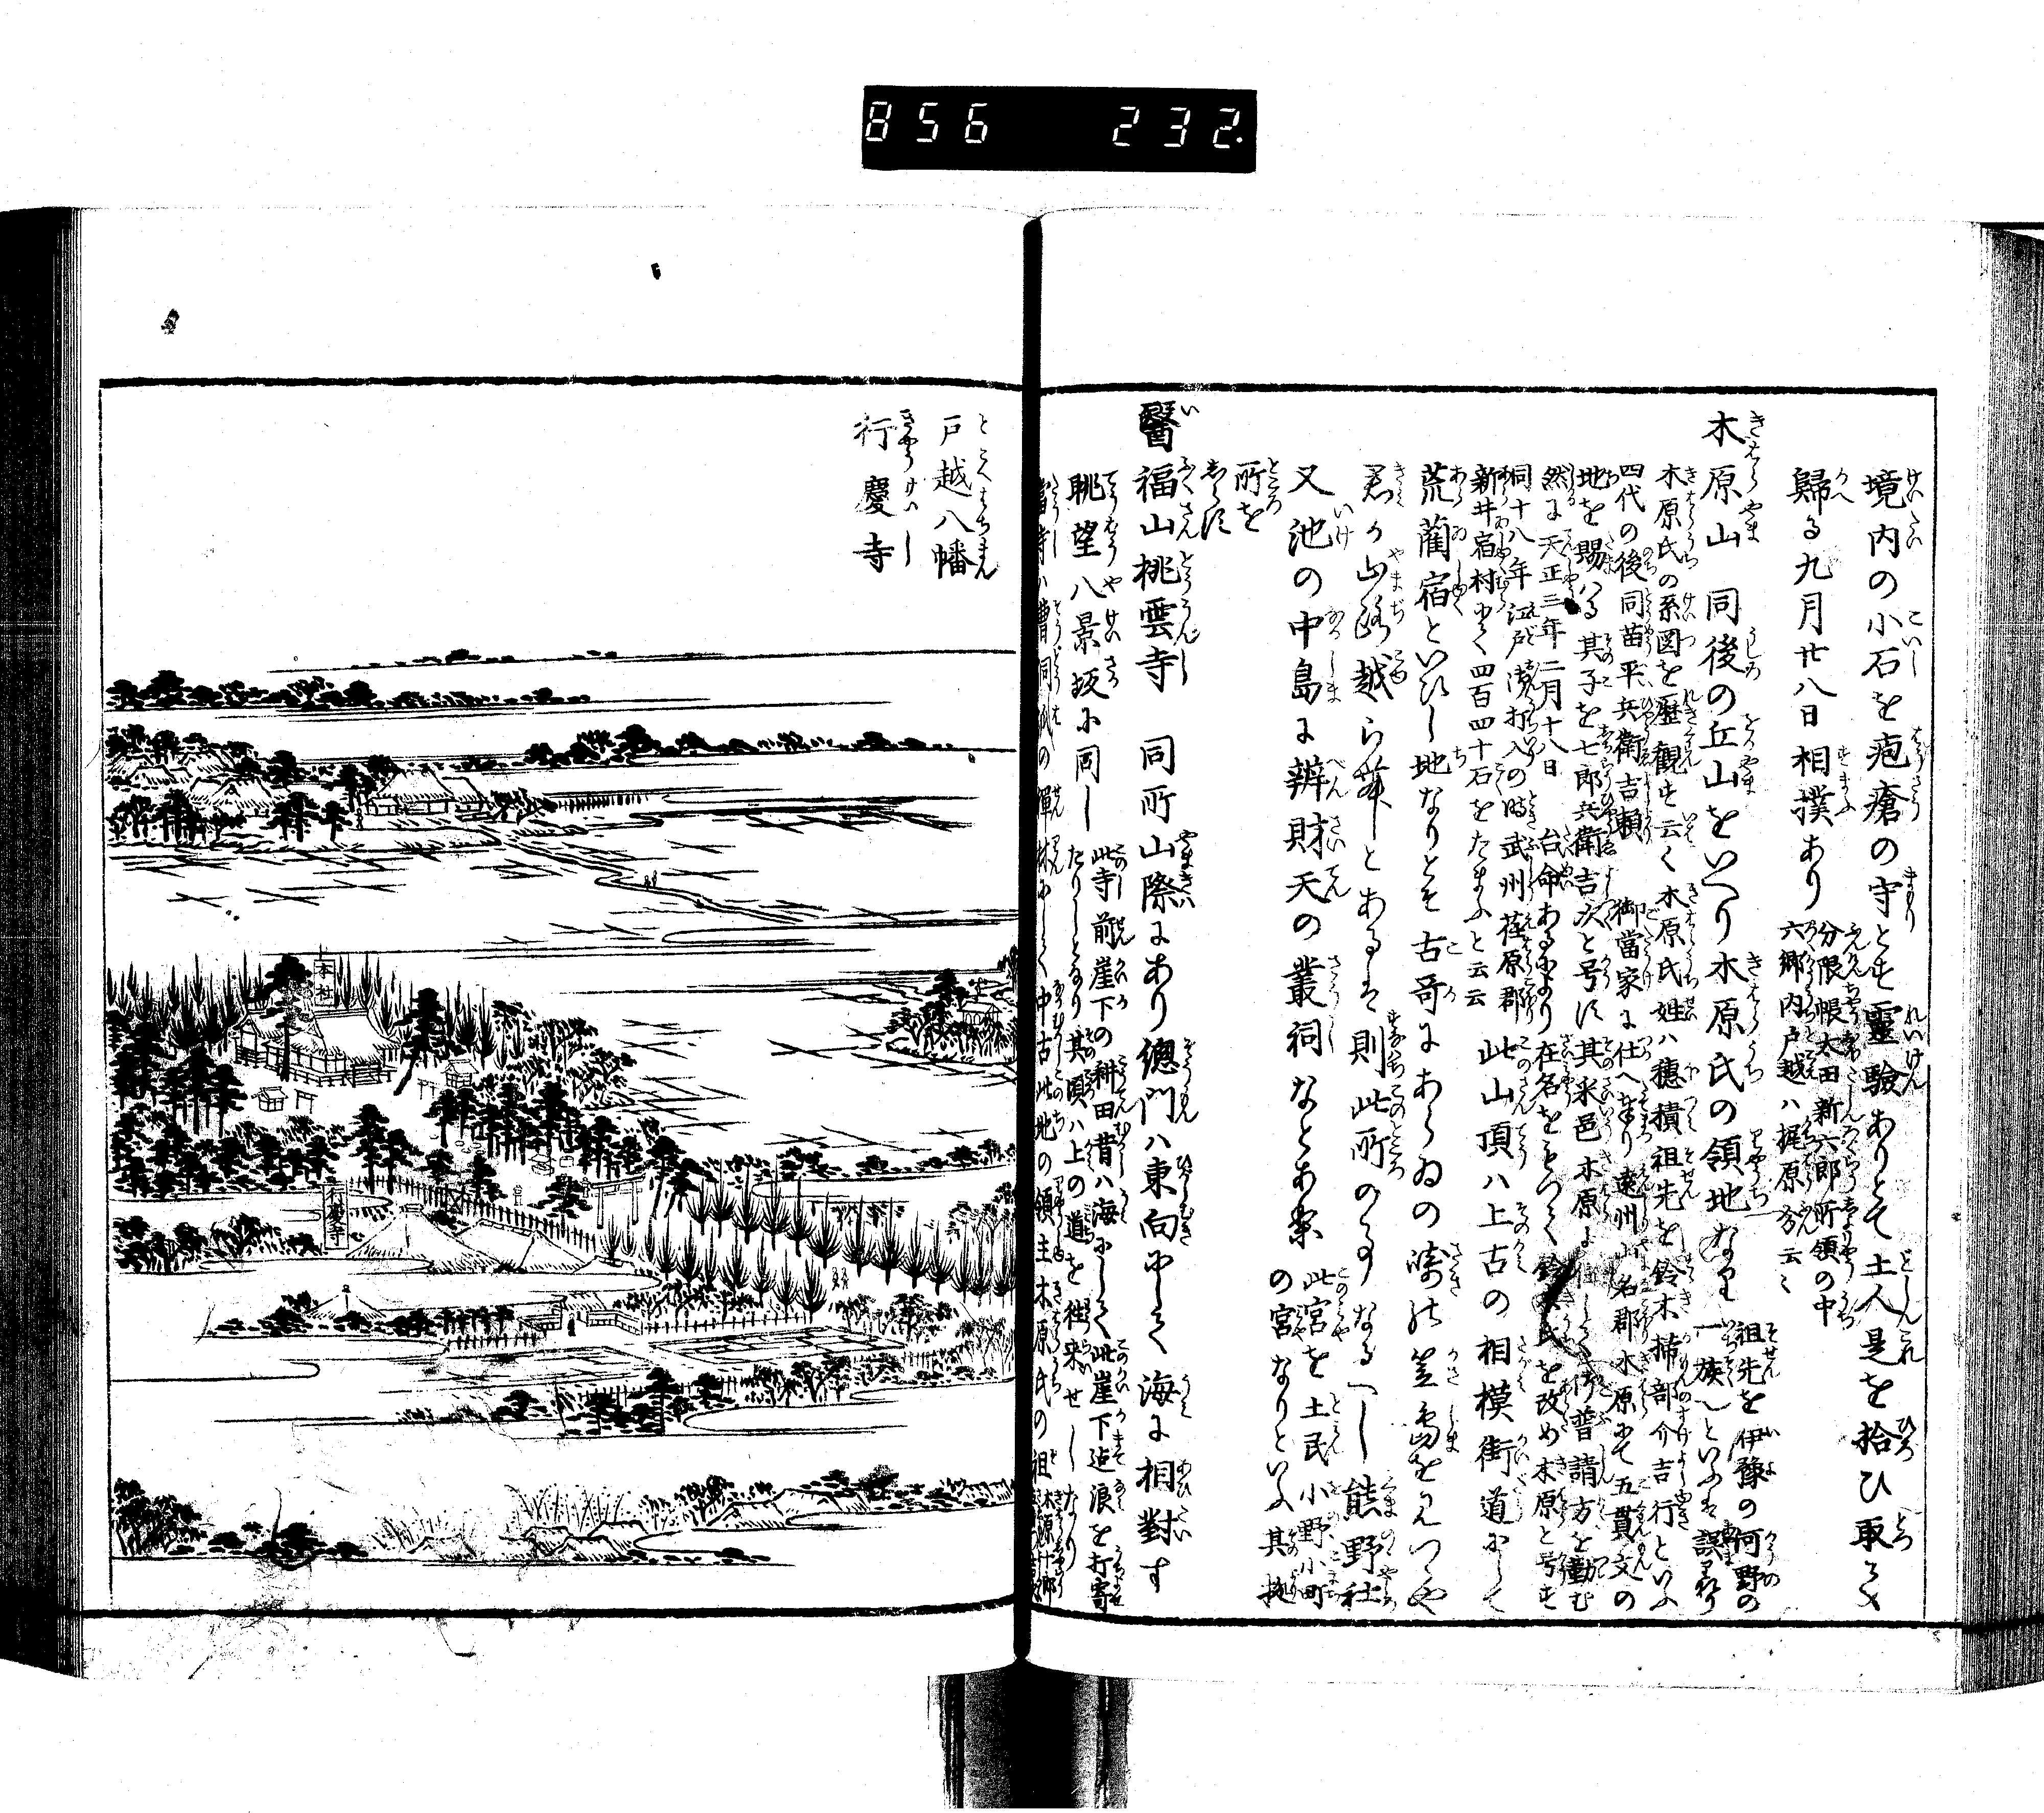 856 232.
境内の小石を疱瘡の守とす霊験ありとて土人是を拾ひ取て
歸る九月廿八日相撲あり
分限帳太田新六郎所領の中
六郷内戸越ハ梶原分云々
木原山 同後の丘山をいへり木原氏の領地なり
祖先を伊豫の河野の
一族といふは誤れり
木原氏の系図を歴観に云く木原氏姓ハ穂積祖先を鈴木掃部介吉行といふ
四代の後同苗平兵衛吉頼 御當家に仕へ奉り遠州山名郡木原にて五貫文の
地を賜ハる其子を七郎兵衛吉次と号す其釆邑木原に
然に天正三年二月十八日 台命あるにより在名をもつて鈴木氏を改め木原と号す
同十八年江戸御打入の時武州荏原郡
新井宿村にて四百四十石をたまふと云云
此山頂ハ上古の相模街道にして
荒藺宿といひし地なりとそ古哥にあらゐの崎の笠島を見つゝや
君か山路越らむとあるは則此所の事なるへし熊野社
又池の中島に辨財天の叢祠なとあり
此宮を土民小野小町
の宮なりといふ其據
所を
しらす
醫福山桃雲寺 同所山際にあり總門ハ東向にして海に相對す
眺望八景坂に同し
此寺前崖下の耕田昔ハ海にして此崖下迄浪を打寄
たりしとなり其頃ハ上の道を往来せしなり
當寺ハ曹洞派の禅林にして中古此地の領主木原氏の祖
戸越八幡
行慶寺
本社
行慶寺